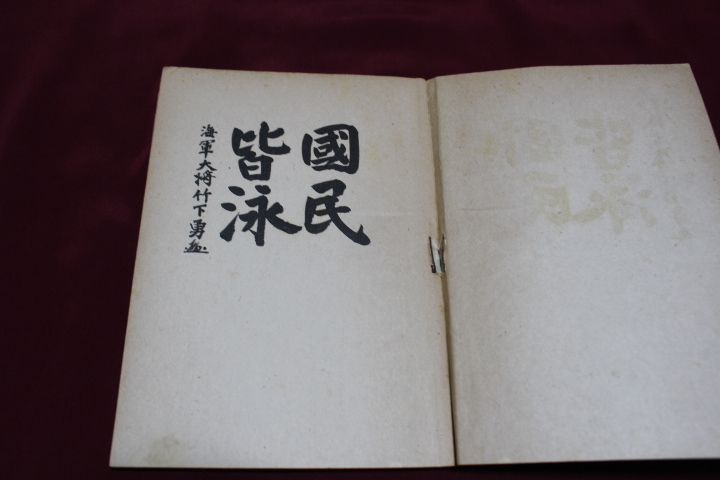 國民
皆泳
海軍大将竹下勇